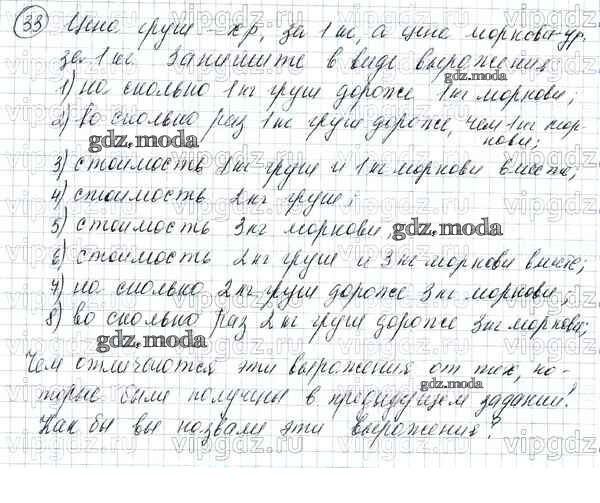 33 Цена груш - х р. за 1 кг, а цена моркови - у р.
за 1 кг. Запишите в виде выражения
1) на сколько 1 кг груш дороже 1 кг моркови;
2) во сколько раз 1 кг груш дороже, чем 1 кг мор-
нови;
gdz.moda
3) стоимость 1 кг груш и 1 кг моркови вместе;
4) стоимость 2 кг груш;
5) стоимость 3 кг моркови; gdz.moda
6) стоимость 2 кг груш и 3 кг моркови вместе;
7) на сколько 2 кг груш дороже 3 кг моркови;
8) во сколько раз 2 кг груш дороже 3 кг моркови;
gdz.moda
Чем отличаются эти выражения от тех, ко-
торые были получены в предыдущем задании?
gdz.moda
Как бы вы назвали эти выражения?